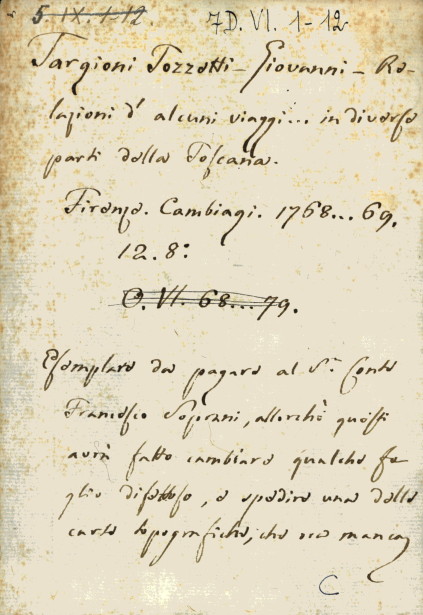 5 IX. 1-12 7D. VI. 1-12
Targioni Tozzetti - Giovanni - Re-
lazioni d' alcuni viaggi... in diverse
parti della Toscana.
Firenze. Cambiagi. 1768... 69.
12. 8:
O. VI. 68... 79.
Esemplare da pagare al Sr. Conte
Francesco Soprani, allorchè questi
avrà fatto cambiare qualche fo
glio difettoso, e spedire una delle
carte topografiche, che ora manca
C